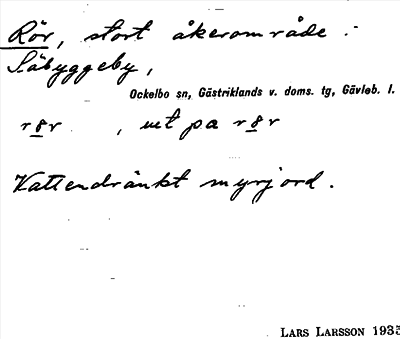 Rör, stort åkerområde i
Säbyggeby,
Ockelbo sn, Gästriklands v. doms. tg, Gävleb. l.
r8r , ut pa r8r
Vattendränkt myrjord.
LARS LARSSON 1935